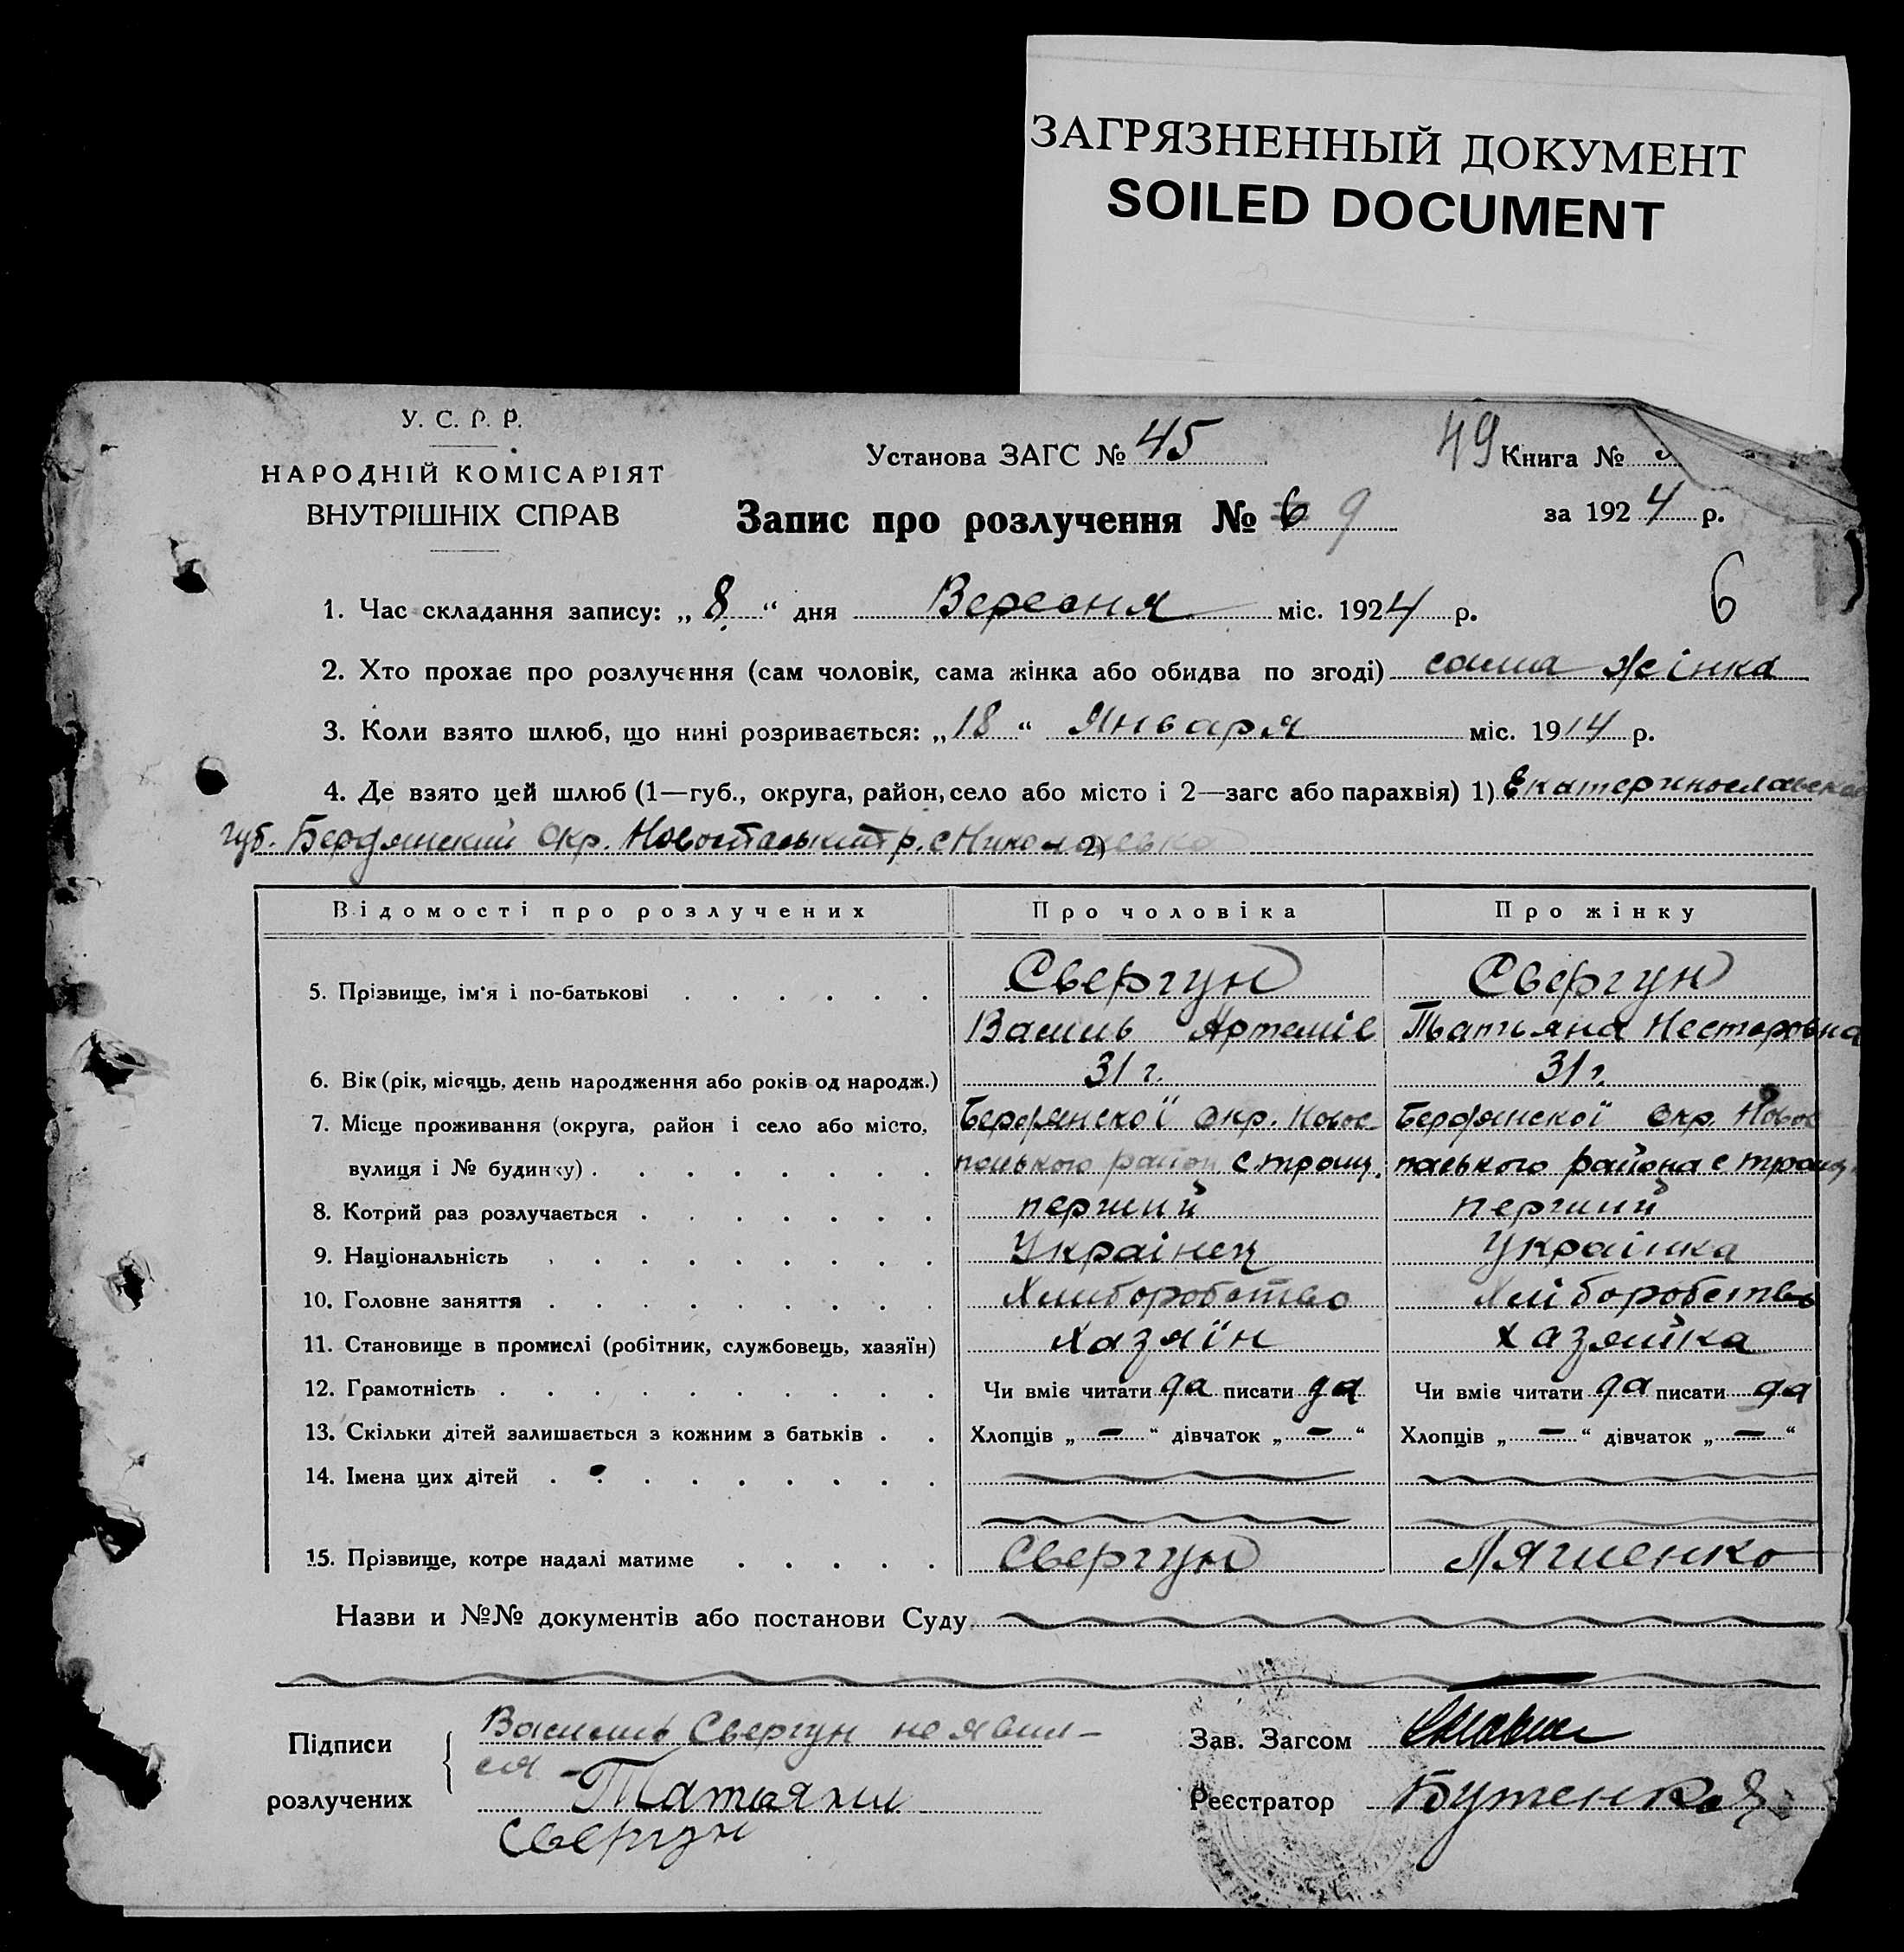 ЗАГРЯЗНЕННЫЙ ДОКУМЕНТ
SOILED DOCUMENT
У. С. Р. Р.
НАРОДНІЙ КОМІСАРІЯТ
ВНУТРІШНІХ СПРАВ
Установа ЗАГС № 45
49 Книга №
Запис про розлучення № 6 9
за 1924 р.
6
1. Час складання запису: „8“ дня Вересня міс. 1924 р.
2. Хто прохає про розлучення (сам чоловік, сама жінка або обидва по згоді) сама жінка
3. Коли взято шлюб, що нині розривається: „18“ Января міс. 1914 р.
4. Де взято цей шлюб (1—губ., округа, район, село або місто і 2—загс або парахвія) 1) Екатеринославской
губ. Бердянский Окр. р. с Николаевка 2)
Відомості про розлучених Про чоловіка Про жінку
5. Прізвище, ім'я і по-батькові Свергун Свергун
Василь Артемів Татьяна Нестеровна
6. Вік (рік, місяць, день народження або років од народж.) 31 г. 31 г.
7. Місце проживання (округа, район і село або місто, Бердянскої Окр. Новос Бердянскої Окр. Новос
вулиця і № будинку) паського район с троиц. паського района с троиц
8. Котрий раз розлучається перший перший
9. Національність Українец Українка
10. Головне заняття Хлиборобство Хліборобство
11. Становище в промислі (робітник, службовець, хазяїн) Хазяїн хазяйка
12. Грамотність Чи вміє читати да писати да Чи вміє читати да писати да
13. Скільки дітей залишається з кожним з батьків Хлопців „ — “ дівчаток „ — “ Хлопців „ — “ дівчаток „ — “
14. Імена цих дітей
15. Прізвище, котре надалі матиме Свергун Ляшенко
Назви и №№ документів або постанови Суду
Підписи
розлучених
Василь Свергун не явил-
ся -
Татьяна
Свергун
Зав. Загсом
Реєстратор Бутенко